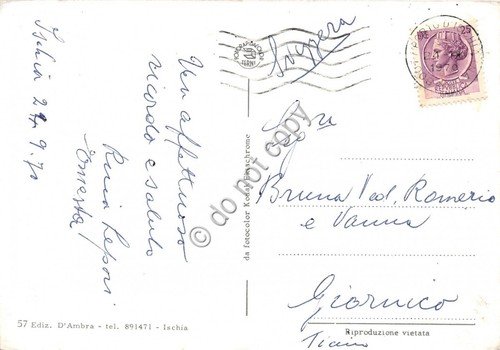 Ischia 24.9.70
Un affettuoso
ricordo e saluto
Ernesta
57 Ediz. D'Ambra - tel. 891471 - Ischia
da fotocolor Kodak Ektachrome
do not copy
Svizzera
25
Bruna Ved. Romerio
e Vanna
Giornico
Ticino
Riproduzione vietata